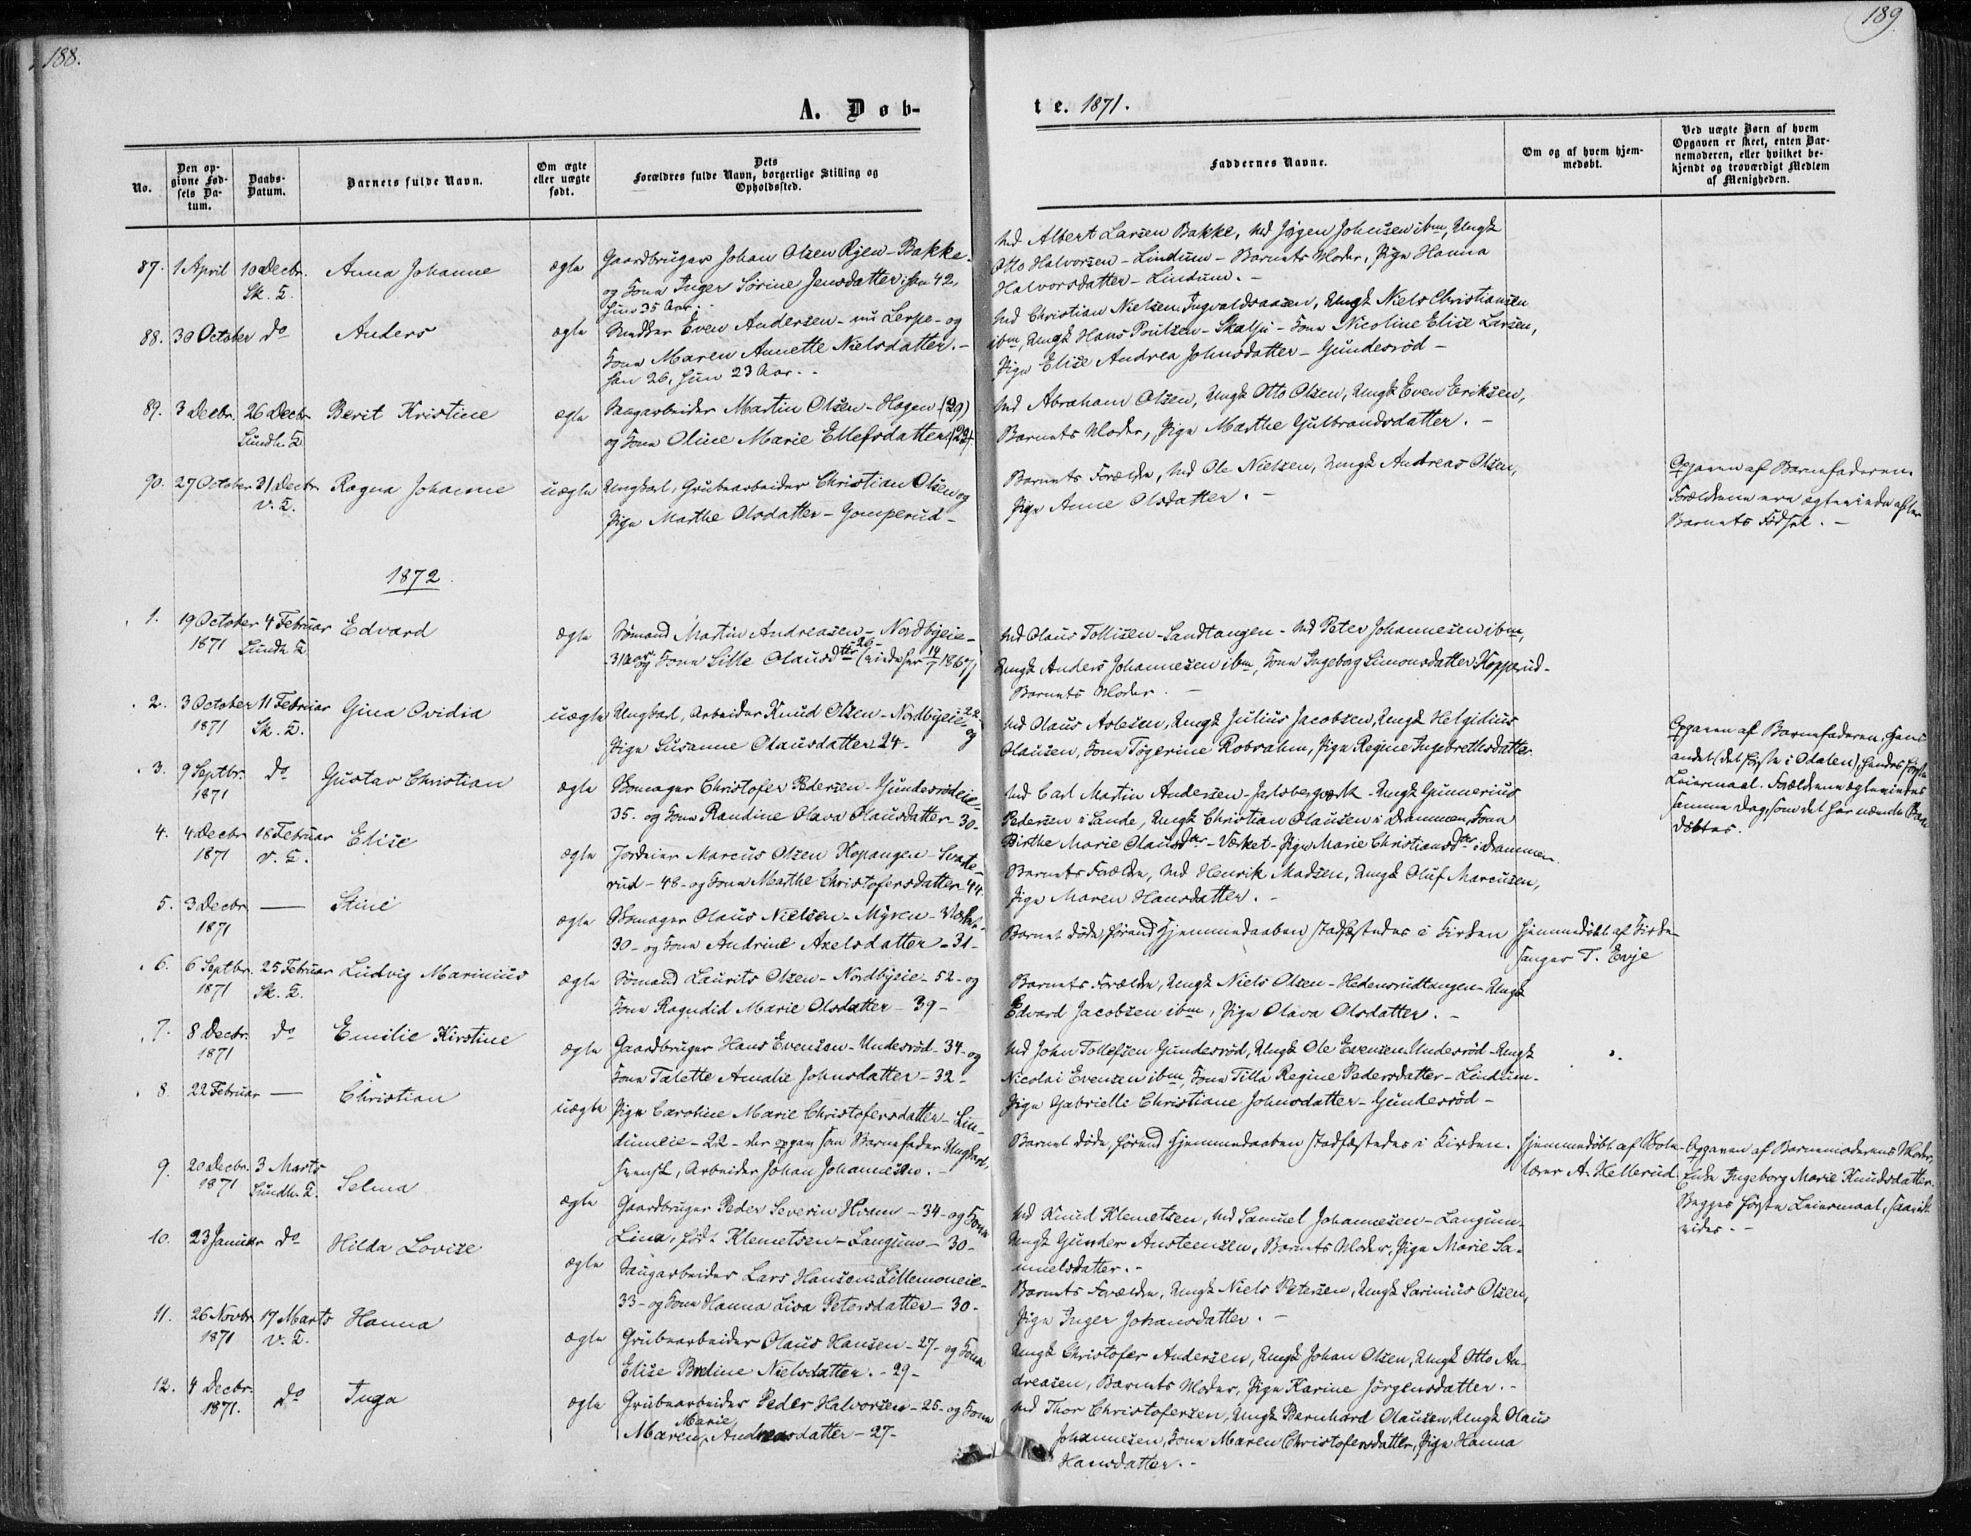 188.
189
A. Døb-
te. 1871.
No.
Den opgivne Fødsels Datum.
Daabs-Datum.
Barnets fulde Navn.
Om ægte eller uægte født.
Dets Forældres fulde Navn, borgerlige Stilling og Opholdssted.
Faddernes Navne.
Om og af hvem hjemmedøbt.
Ved uægte Børn af hvem Opgaven er skeet, enten Barnemoderen, eller hvilket bekjendt og troværdigt Medlem af Menigheden.
87. 1 April 10 Decbr. Sk. K. Anna Johanne ægte
Gaardbruger Johan Olsen Rjen - Bakke.
og Kone Inger Sørine Jensdatter han 42,
hun 35 Aar.
Md Albert Larsen Bakke, Md Jørgen Johnsen ibm, Ungk
Otto Halvorsen - Lindum - Barnets Moder, Pige Hanna
Halvorsdatter - Lindum. -
88. 30 October do Anders ægte
Bødker Even Andersen - nu Lerpe - og
Kone Maren Annette Nielsdatter. -
han 26, hun 23 Aar. -
Md Christian Nielsen Ingvaldsaasen, Ungk Niels Christiansen
ibm, Ungk Hans Poulsen - Skalju - Kone Nicoline Elise Larsen,
Pige Elise Andrea Johnsdatter - Gundesrød -
89. 3 Decbr. 26 Decbr Sundh. K Berit Kristine ægte
Saugarbeider Martin Olsen - Hagen (29)
og Kone Oline Marie Ellefsdatter (22).
Md Abraham Olsen, Ungk Otto Olsen, Ungk Even Eriksen,
Barnets Moder, Pige Marthe Gulbrandsdatter. -
90. 27 October 31 Decbr V. K. Ragna Johanne uægte
Ungkarl, Grubearbeider Christian Olsen og
Pige Marthe Olsdatter - Gomperud -
Barnets Forældre, Md Ole Nielsen, Ungk Andreas Olsen,
Pige Anne Olsdatter. -
Opgaven af Barnefaderen.
Forældrene ere egteviede efter
Barnets Fødsel. -
1872.
1. 19 October 1871 4 Februar Sundh. K Edvard ægte
Sømand Martin Andreasen - Nordbyeie -
31 Aar og Kone Lille Olausdtr 26 - (viede her 14/7 1867)
Md Olaus Tollisen - Sandtangen - Md Peter Johannesen ibm,
Ungk Anders Johannesen ibm, Kone Ingeborg Simonsdatter Kopperud -
Barnets Moder. -
2. 3 October 1871 11 Februar Sk. K. Gina Ovidia uægte
Ungkarl, Arbeider Knud Olsen - Nordbyeie - 22 og
Pige Susanne Olausdatter 24 -
Md Olaus Aslesen, Ungk Julius Jacobsen, Ungk Helgidius
Olausen, Kone Tøgerine Robrahm, Pige Regine Ingebrethsdatter.
Opgaven af Barnefaderen, hans
andet (det første i Odalen), hendes første
Leiermaal. Forældrene egteviedes
samme Dag, som det her nævnte Barn
døbtes.
3. 9 Septbr. 1871 do Gustav Christian ægte
Skomager Christofer Pedersen - Gundesrødeie -
35 - og Kone Randine Olava Olausdatter - 30 -
Md Carl Martin Andersen - Jarlsbergværk - Ungk Gunnerius
Pedersen i Sande, Ungk Christian Olausen i Drammen, Kone
Birthe Marie Olausdtr - Værket - Pige Marie Christiansdtr i Drammen.
4. 4 Decbr 1871 18 Februar V. K. Elise ægte
Jordeier Marcus Olsen Kopangen - Svarte-
rud - 48 - og Kone Marthe Christofersdatter 44.
Barnets Forældre, Md Henrik Madsen, Ungk Oluf Marcusen,
Pige Maren Hansdatter. -
5. 3 Decbr 1871 — Stine ægte
Skomager Olaus Nielsen - Myren - Værket -
30 - og Kone Andrine Axelsdatter - 31 -
Barnet døde, førend Hjemmedaaben stadfæstedes i Kirken
Hjemmedøbt af Kirke-
sanger T. Evje
6. 6 Septbr. 1871 25 Februar Sk. K. Ludvig Marinius ægte
Sømand Laurits Olsen - Nordbyeie - 52 - og
Kone Ragndid Marie Olsdatter - 39 -
Barnets Forældre, Ungk Niels Olsen - Hedensrudtangen - Ungk
Edvard Jacobsen ibm, Pige Olava Olsdatter. -
7. 8 Decbr. 1871 do Emilie Kirstine ægte
Gaardbruger Hans Evensen - Undesrød - 34 - og
Kone Talette Amalie Johnsdatter - 32 -
Md John Tollefsen Gundesrød, Ungk Ole Evensen Undesrød - Ungk
Nicolai Evensen ibm, Kone Tilla Regine Pedersdatter - Lindum -
Pige Gabrielle Christiane Johnsdatter - Gundesrød -
8. 22 Februar — Christian uægte
Pige Caroline Marie Christofersdatter - Lin-
dumeie - 22 - der opgav som Barnefader Ungkarl,
svensk, Arbeider Johan Johannesen. -
Barnet døde, førend Hjemmedaaben stadfæstedes i Kirken.
Hjemmedøbt af Skole-
lærer A. Hellerud.
Opgaven af Barnemoderens Moder,
Enke Ingeborg Marie Knudsdatter.
Begges første Leiermaal,
vides. -
9. 20 Decbr. 1871 3 Marts Sundh. K. Selma ægte
Gaardbruger Peder Severin Hvam - 34 - og Kone
Lina, født Klemetsen - Langum - 30 -
Md Knud Klemetsen, Md Samuel Johannesen - Langum -
Ungk Gunder Anstensen, Barnets Moder, Pige Marie Sa-
muelsdatter. -
10. 23 Januar do Hilda Lovise ægte
Saugarbeider Lars Hansen Lillemoneie -
33 - og Kone Hanna Lisa Petersdatter - 30 -
Barnets Forældre, Ungk Niels Petersen, Ungk Sarinius Olsen,
Pige Inger Johansdatter. -
11. 26 Novbr 1871 17 Marts V. K. Hanna ægte
Grubearbeider Olaus Hansen - 27 - og Kone
Elise Bredine Nielsdatter. - 29 -
Ungk Christofer Andersen, Ungk Johan Olsen, Ungk Otto An-
dreasen, Barnets Moder, Pige Karine Jørgensdatter. -
12. 4 Decbr. 1871. do Inga ægte
Grubearbeider Peder Halvorsen - 25 - og Kone
Maren Marie Andreasdatter - 27 -
Md Thor Christofersen, Ungk Bernhard Olausen, Ungk Olaus
Johannesen, Kone Maren Christofersdatter, Pige Hanna
Hansdatter. -